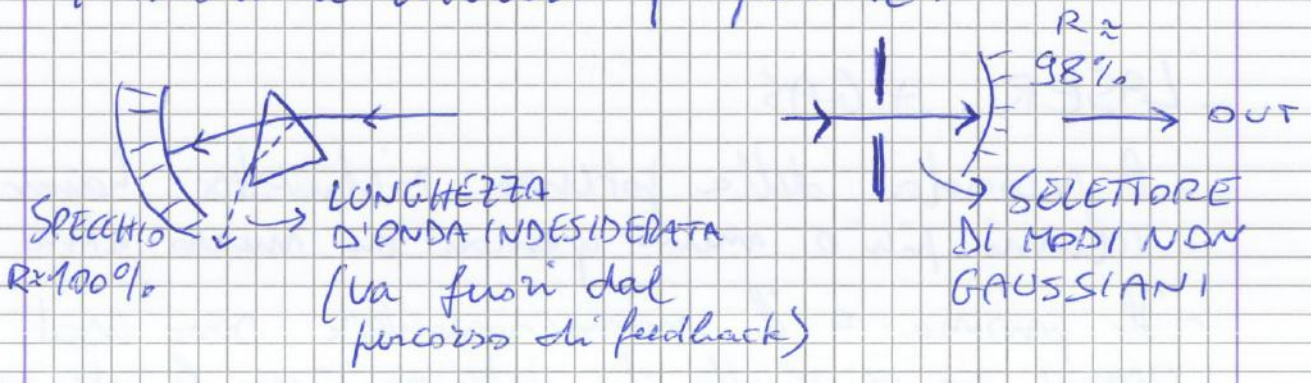 R ≈
98%
OUT
SPECCHIO
R≈100%
LUNGHEZZA
D'ONDA INDESIDERATA
(va fuori dal
percorso di feedback)
SELETTORE
DI MODI NON
GAUSSIANI